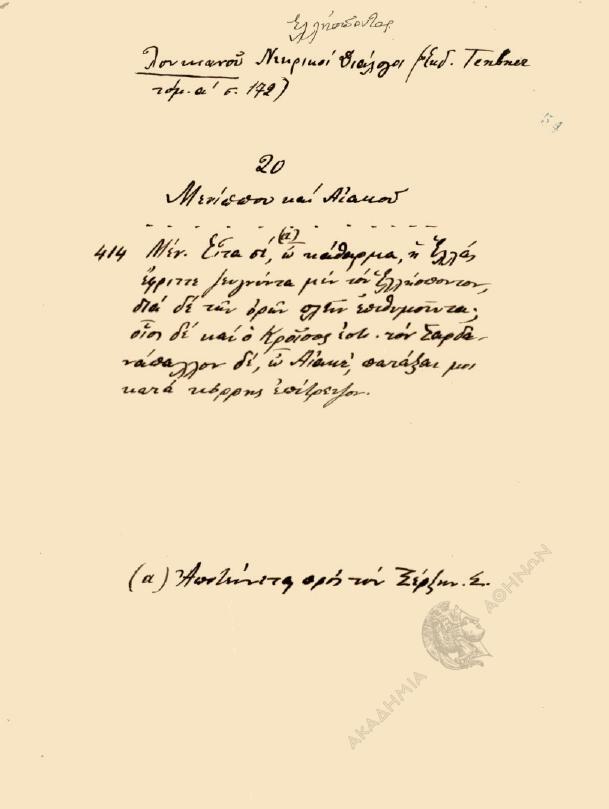 Ἑλλήσποντος
Λουκιανοῦ Νεκρικοί Διάλογοι (Ἐκδ. Teubner
τόμ. α' σ. 172)
20
Μενίππου καί Αἰακοῦ
(α)
414 Μέν. Εἶτα σέ, ὦ κάθαρμα, ἡ Ἑλλάς
ἔφριττε ζευγνύντα μέν τόν Ἑλλήσποντον,
διά δέ τῶν ὀρῶν πλεῖν ἐπιθυμοῦντα;
οἷος δέ καί ὁ Κροῖσος ἐστι. τόν Σαρδα-
νάπαλλον δέ, ὦ Αἰακέ, πατάξαι μοι
κατά κόρρης ἐπίτρεψον.
(α) Ἀποτείνεται πρός τόν Ξέρξην. Σ.
ΑΚΑΔΗΜΙΑ ΑΘΗΝΩΝ